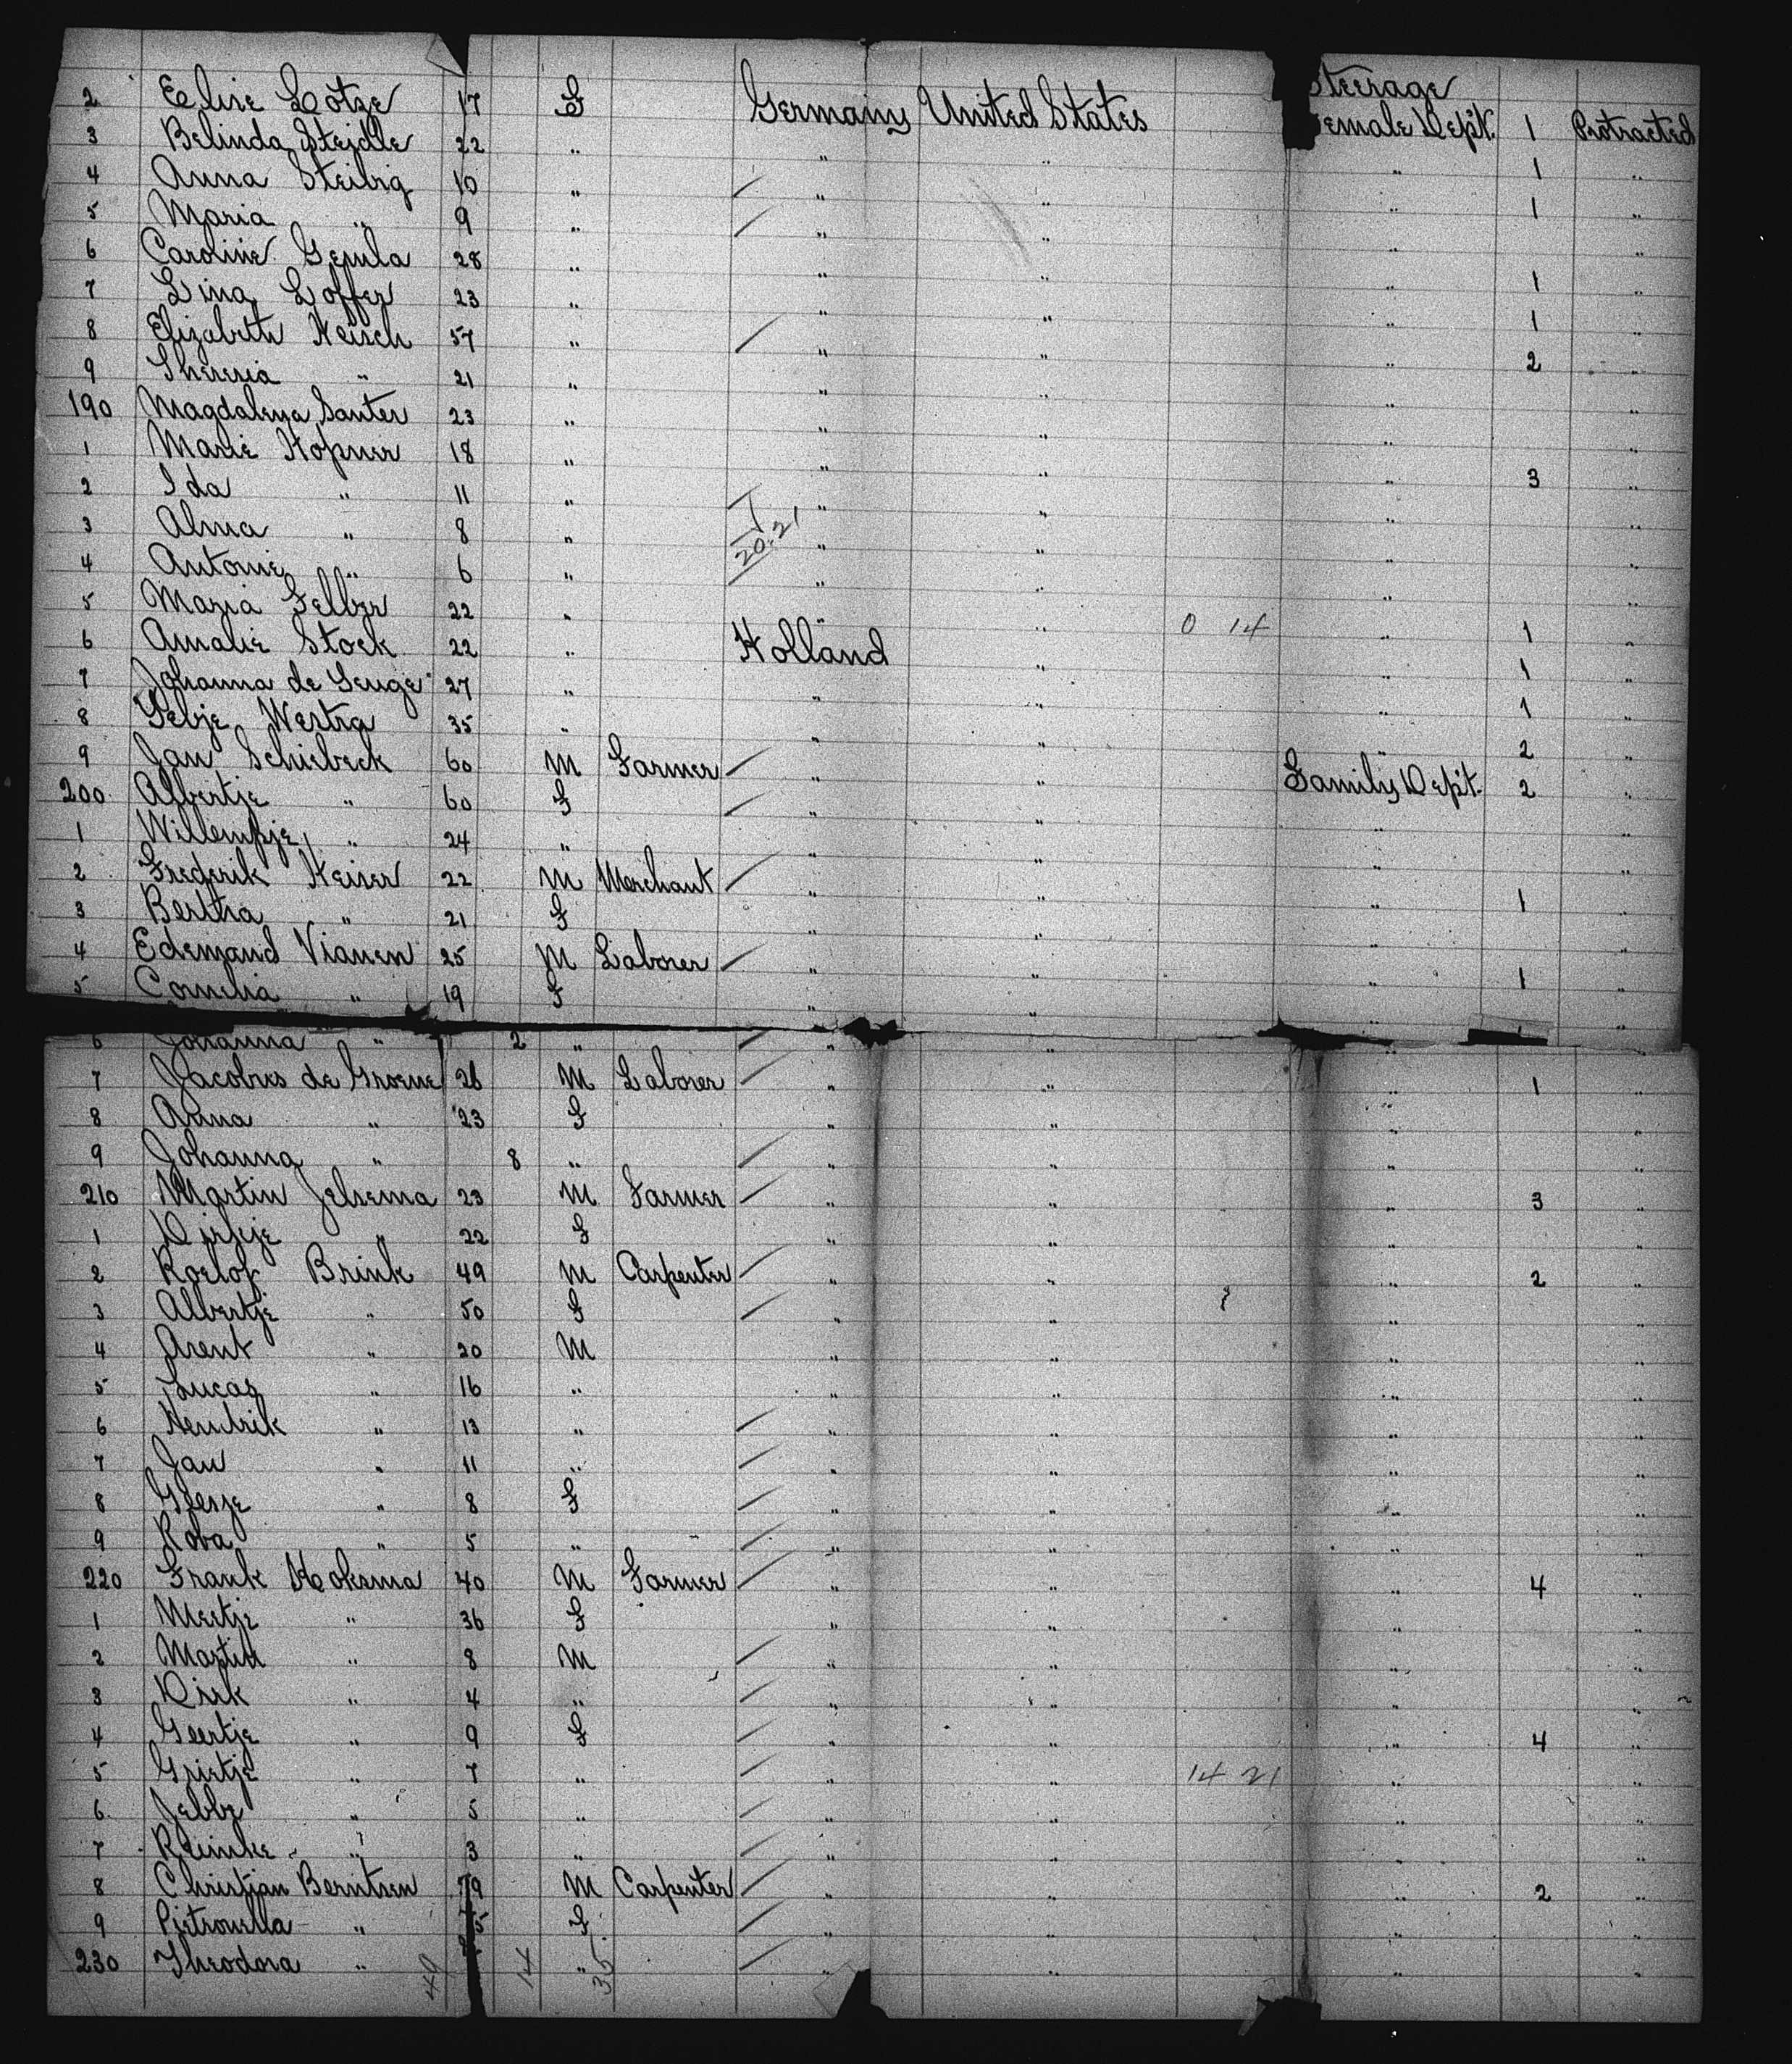 Steerage
2 Elise Lotze 17 F Germany United States Female Dept. 1 Protracted
3 Belinda Steidle 22 " " " " 1 "
4 Anna Steibig 10 " " " " 1 "
5 Maria " 9 " " " " "
6 Caroline Gemla 28 " " " " 1 "
7 Lina Loffer 23 " " " " 1 "
8 Elizabeth Heisch 57 " " " " 2 "
9 Theresia " 21 " " " " "
190 Magdalena Santer 23 " " " " "
1 Marie Hopner 18 " " " " 3 "
2 Ida " 11 " " " " "
3 Alma " 8 " 20.21 " " " "
4 Antonie " 6 " " " " "
5 Maria Felber 22 " " " 0 14 " 1 "
6 Amalie Stock 22 " Holland " " 1 "
7 Johanna de 27 " " " " 1 "
8 Westra 35 " " " " 2 "
9 Jan Schiebeck 60 M Farmer " " Family Dept. 2 "
200 Albertje " 60 F " " " "
1 Willempje " 24 " " " " "
2 Frederik Keiser 22 M Merchant " " " 1 "
3 Bertha " 21 F " " " "
4 Edemand Vianen 25 M Laborer " " " 1 "
5 Cornelia " 19 F " " " "
6 Johanna " 2 " " " " "
7 Jacobus de Groene 26 M Laborer " " " 1 "
8 Anna " 23 F " " " "
9 Johanna " 8 " " " " "
210 Martin Jelsema 23 M Farmer " " " 3 "
1 " 22 F " " " "
2 Roelof Brink 49 M Carpenter " " " 2 "
3 Albertje " 50 F " " " "
4 Arent " 20 M " " " "
5 Lucas " 16 " " " " "
6 Hendrik " 13 " " " " "
7 Jan " 11 " " " " "
8 Geesje " 8 F " " " "
9 Roba " 5 " " " " "
220 Frank Hoksma 40 M Farmer " " " 4 "
1 Meetje " 36 F " " " "
2 Martin " 8 M " " " "
3 Dirk " 4 " " " " "
4 Geertje " 9 F " " " 4 "
5 Grietje " 7 " " " 14 21 " "
6 Jebbe " 5 " " " " "
7 Reinke " 3 " " " " "
8 Christian Berntsen 9 M Carpenter " " " 2 "
9 Pietronella " 5 F " " " "
230 Theodora " 49 14 " 35 " " " "